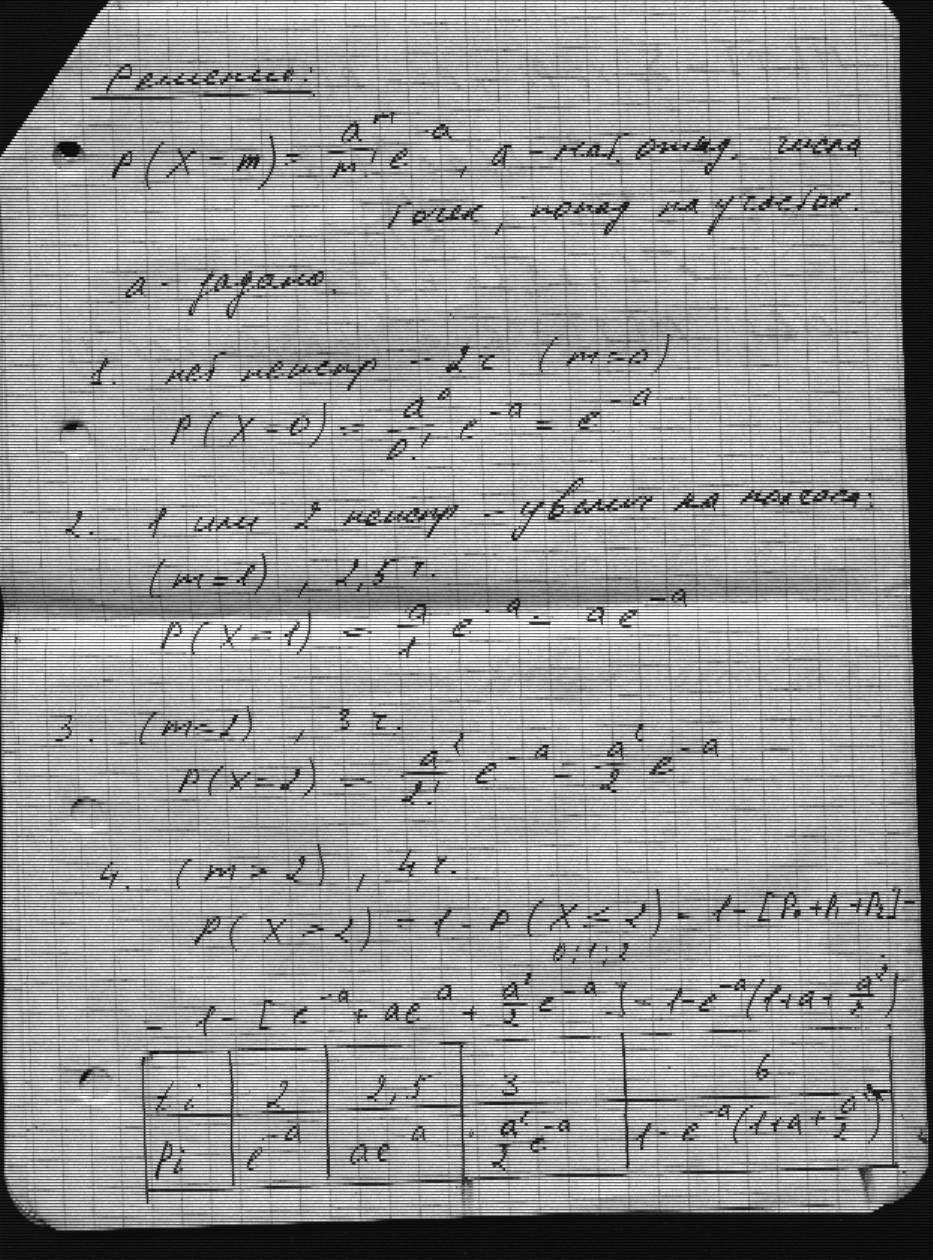 Решение:
P(X=m) = a^m/m! e^-a, a - мат. ожид. числа
точек, попад на участок.
a - задано.
1. нет неиспр - 2ч (m=0)
P(X=0) = a^0/0! e^-a = e^-a
2. 1 или 2 неиспр - увелич на полчаса:
(m=1), 2,5 ч.
P(X=1) = a/1 e^-a = ae^-a
3. (m=2), 3 ч.
P(X=2) = a^2/2! e^-a = a^2/2 e^-a
4. (m>2), 4 ч.
P(X>2) = 1-P(X≤2) = 1-[P0+P1+P2]=
0;1;2
= 1-[e^-a + ae^-a + a^2/2 e^-a] = 1-e^-a(1+a+a^2/2)
ti 2 2,5 3 6
Pi e^-a ae^-a a^2/2 e^-a 1-e^-a(1+a+a^2/2)